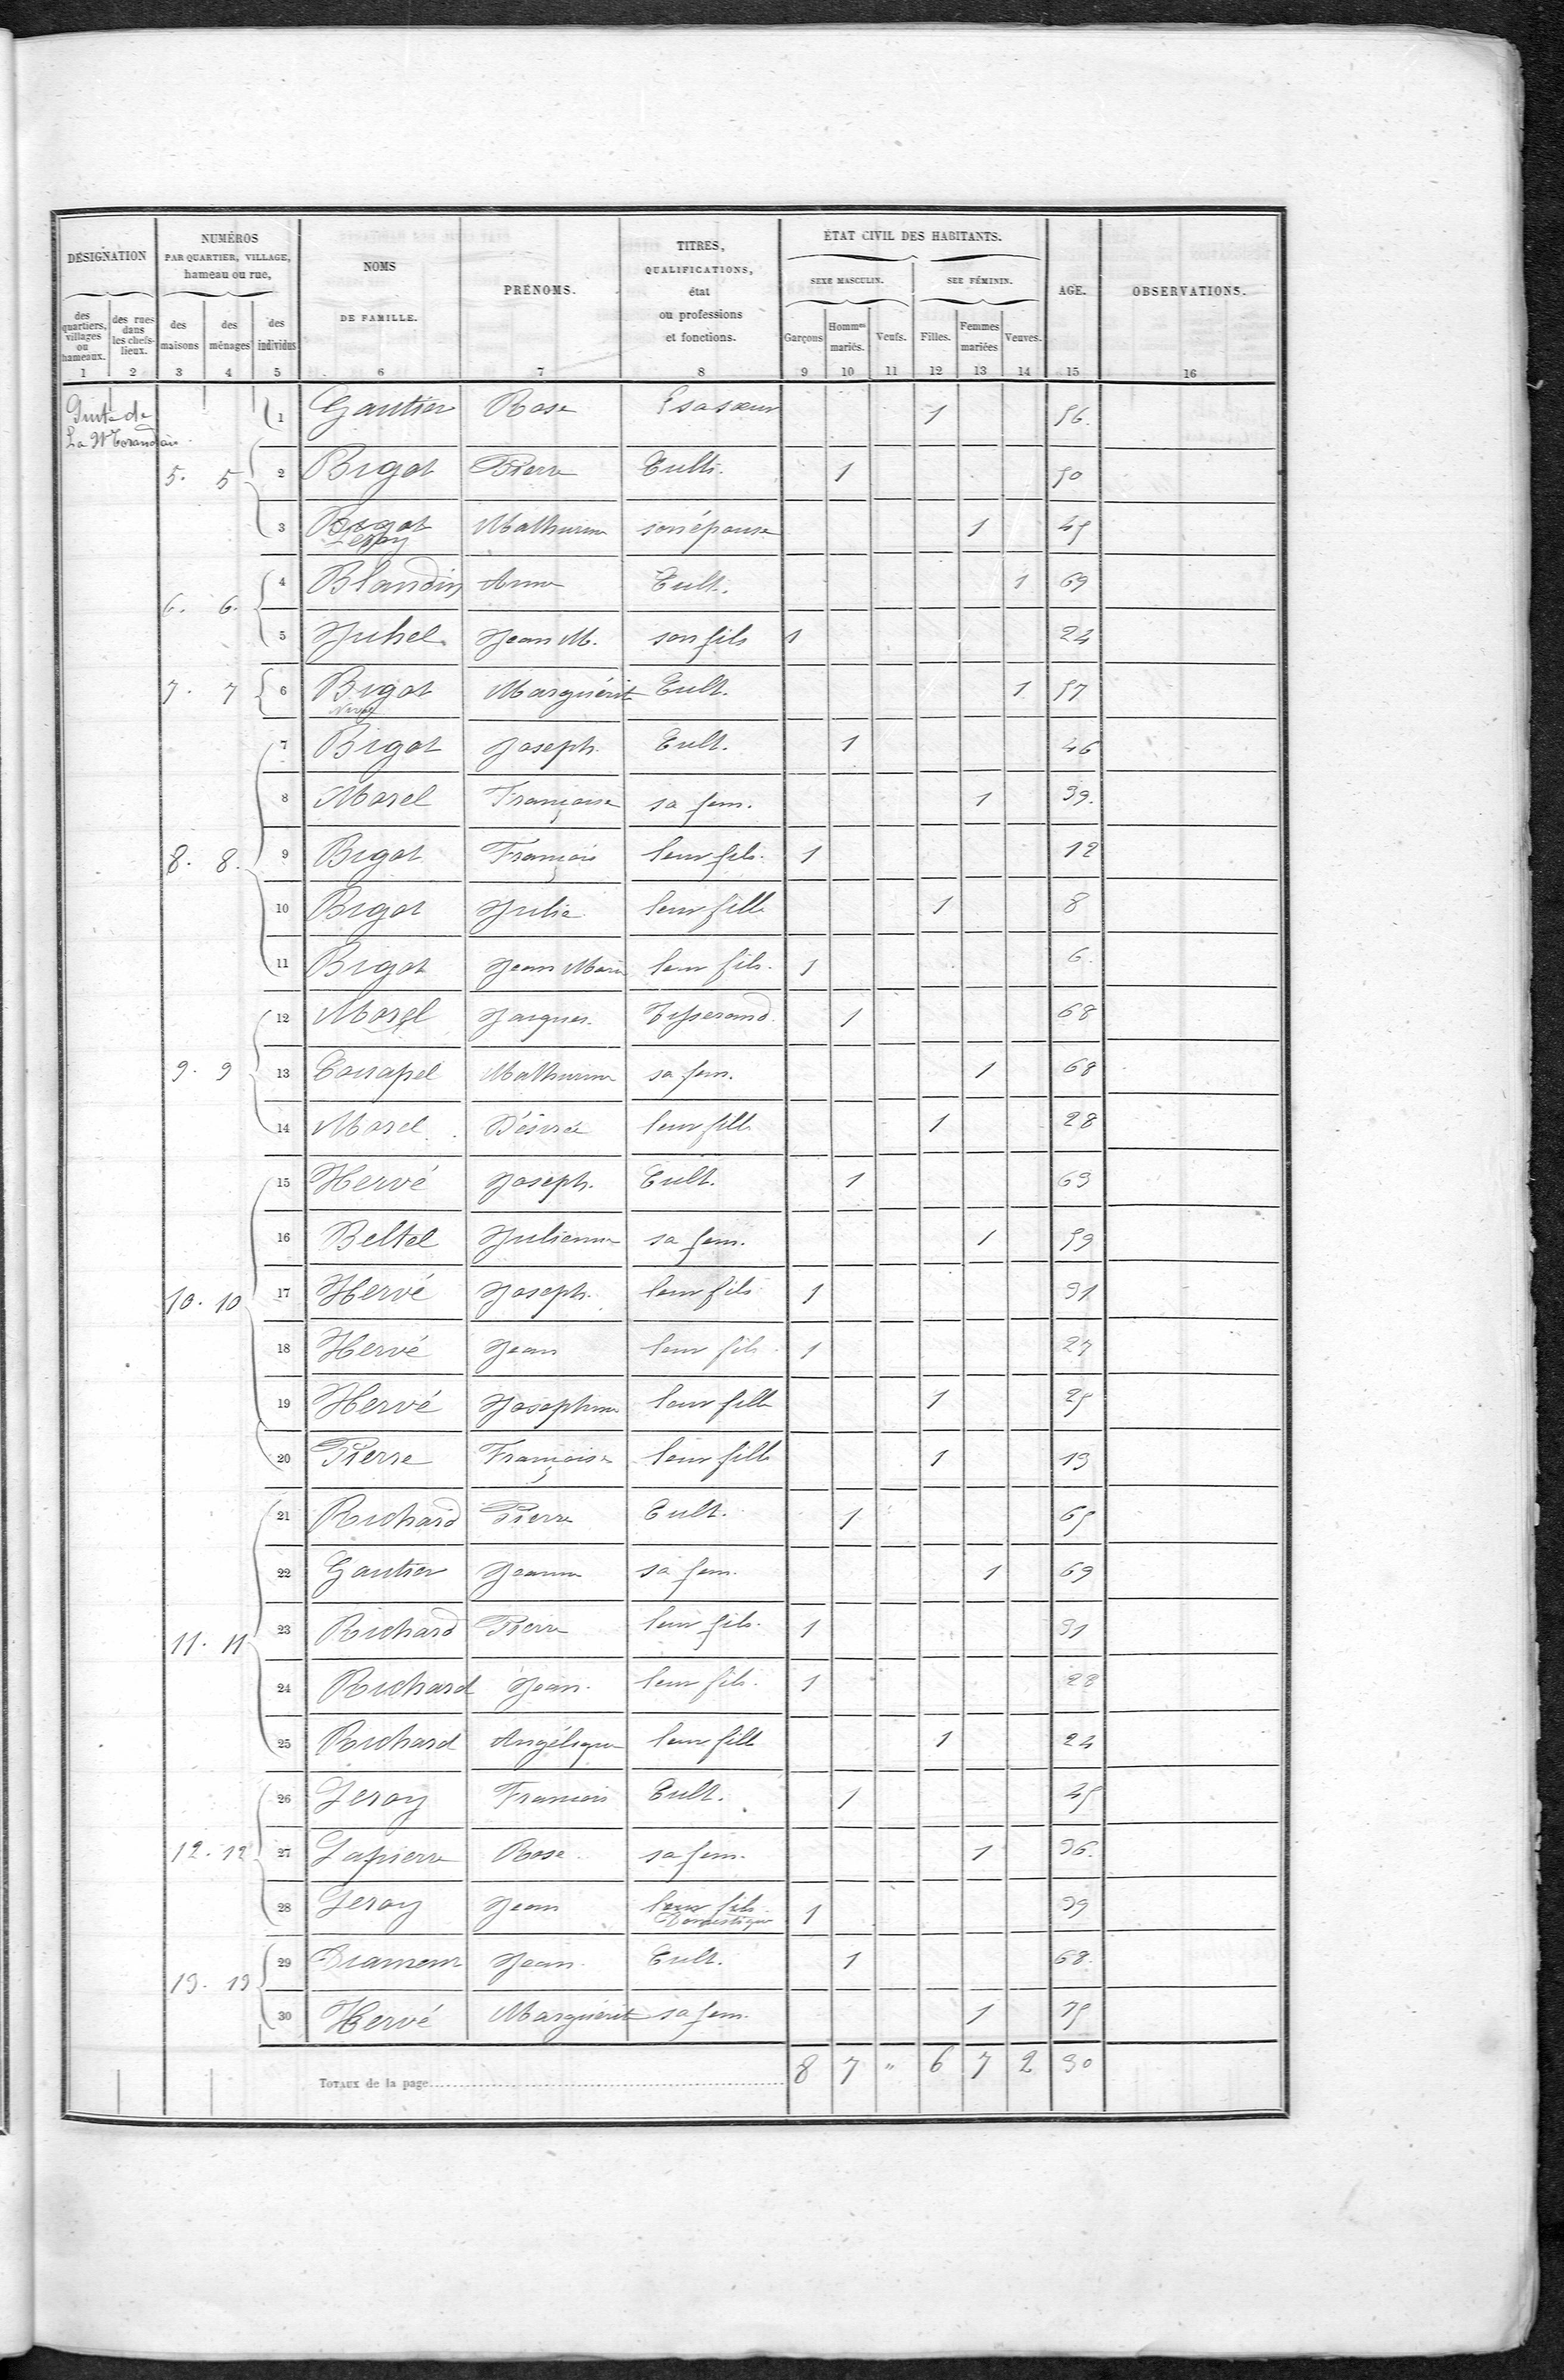 DÉSIGNATION
NUMÉROS
PAR QUARTIER, VILLAGE,
hameau ou rue,
NOMS
DE FAMILLE.
PRÉNOMS.
TITRES,
QUALIFICATIONS,
état
ou professions
et fonctions.
ÉTAT CIVIL DES HABITANTS.
SEXE MASCULIN.
SEE FÉMININ.
AGE.
OBSERVATIONS.
des quartiers, villages ou hameaux.
des rues dans les chefs-lieux.
des maisons
des ménages
des individus
Garçons
Hommes mariés.
Veufs.
Filles.
Femmes mariées
Veuves.
1 2 3 4 5 6 7 8 9 10 11 12 13 14 15 16
de
La
1 Gautier Rose sa sœur 1 56.
5. 5 2 Bigot Pierre Cult. 1 50
3 Bigot Leroy Mathurine son épouse 1 45
6. 6. 4 Blandin Anne Cult. 1 69
5 Juhel Jean M. son fils 1 24
7. 7 6 Bigot Marguerit Cult. 1 57
Veuve
7 Bigot Joseph Cult. 1 46
8 Morel Françoise sa fem. 1 39.
8. 8. 9 Bigot François leur fils. 1 12
10 Bigot Julie leur fille 1 8
11 Bigot Jean Marie leur fils. 1 6.
12 Morel Jacques Tisserand 1 68
9. 9 13 Couapel Mathurine sa fem. 1 68
14 Morel Désirée leur fille 1 28
15 Hervé Joseph. Cult. 1 63
16 Beltel Julienne sa fem. 1 59
10. 10 17 Hervé Joseph. leur fils 1 31
18 Hervé Jean leur fils 1 27
19 Hervé Josephine leur fille 1 25
20 Pierre Françoise leur fille 1 13
21 Richard Pierre Cult. 1 65
22 Gautier Jeanne sa fem. 1 69
11. 11 23 Richard Pierre leur fils. 1 31
24 Richard Jean. leur fils. 1 28
25 Richard Angélique leur fille 1 24
26 Leroy François Cult. 1 45
12. 12 27 Lapierre Rose sa fem. 1 36.
28 Leroy Jean leur fils Domestique 1 39
13. 13 29 Jean Cult. 1 68.
30 Hervé Marguerit sa fem. 1 75
TOTAUX de la page 8 7 " 6 7 2 30